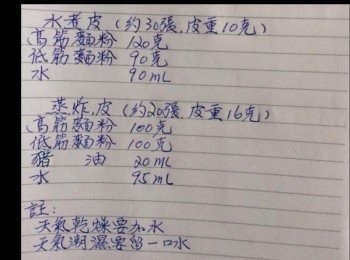 水煮皮(約30張,皮重10克)
高筋麵粉 120克
低筋麵粉 90克
水 90mL
蒸炸皮(約20張,皮重16克)
高筋麵粉 100克
低筋麵粉 100克
豬油 20mL
水 95mL
註:
天氣乾燥要加水
天氣潮濕要留一口水